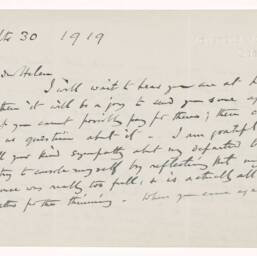 30 1919
Helen
I will wait to hear you are at h
then it will be a joy to send you some
you cannot possibly pay for them; there c
no question abt it. I am grateful
your kind sympathy abt my departed
try to console myself by reflecting that my
was really too full, & is actually all
for the thinning. When you come aga